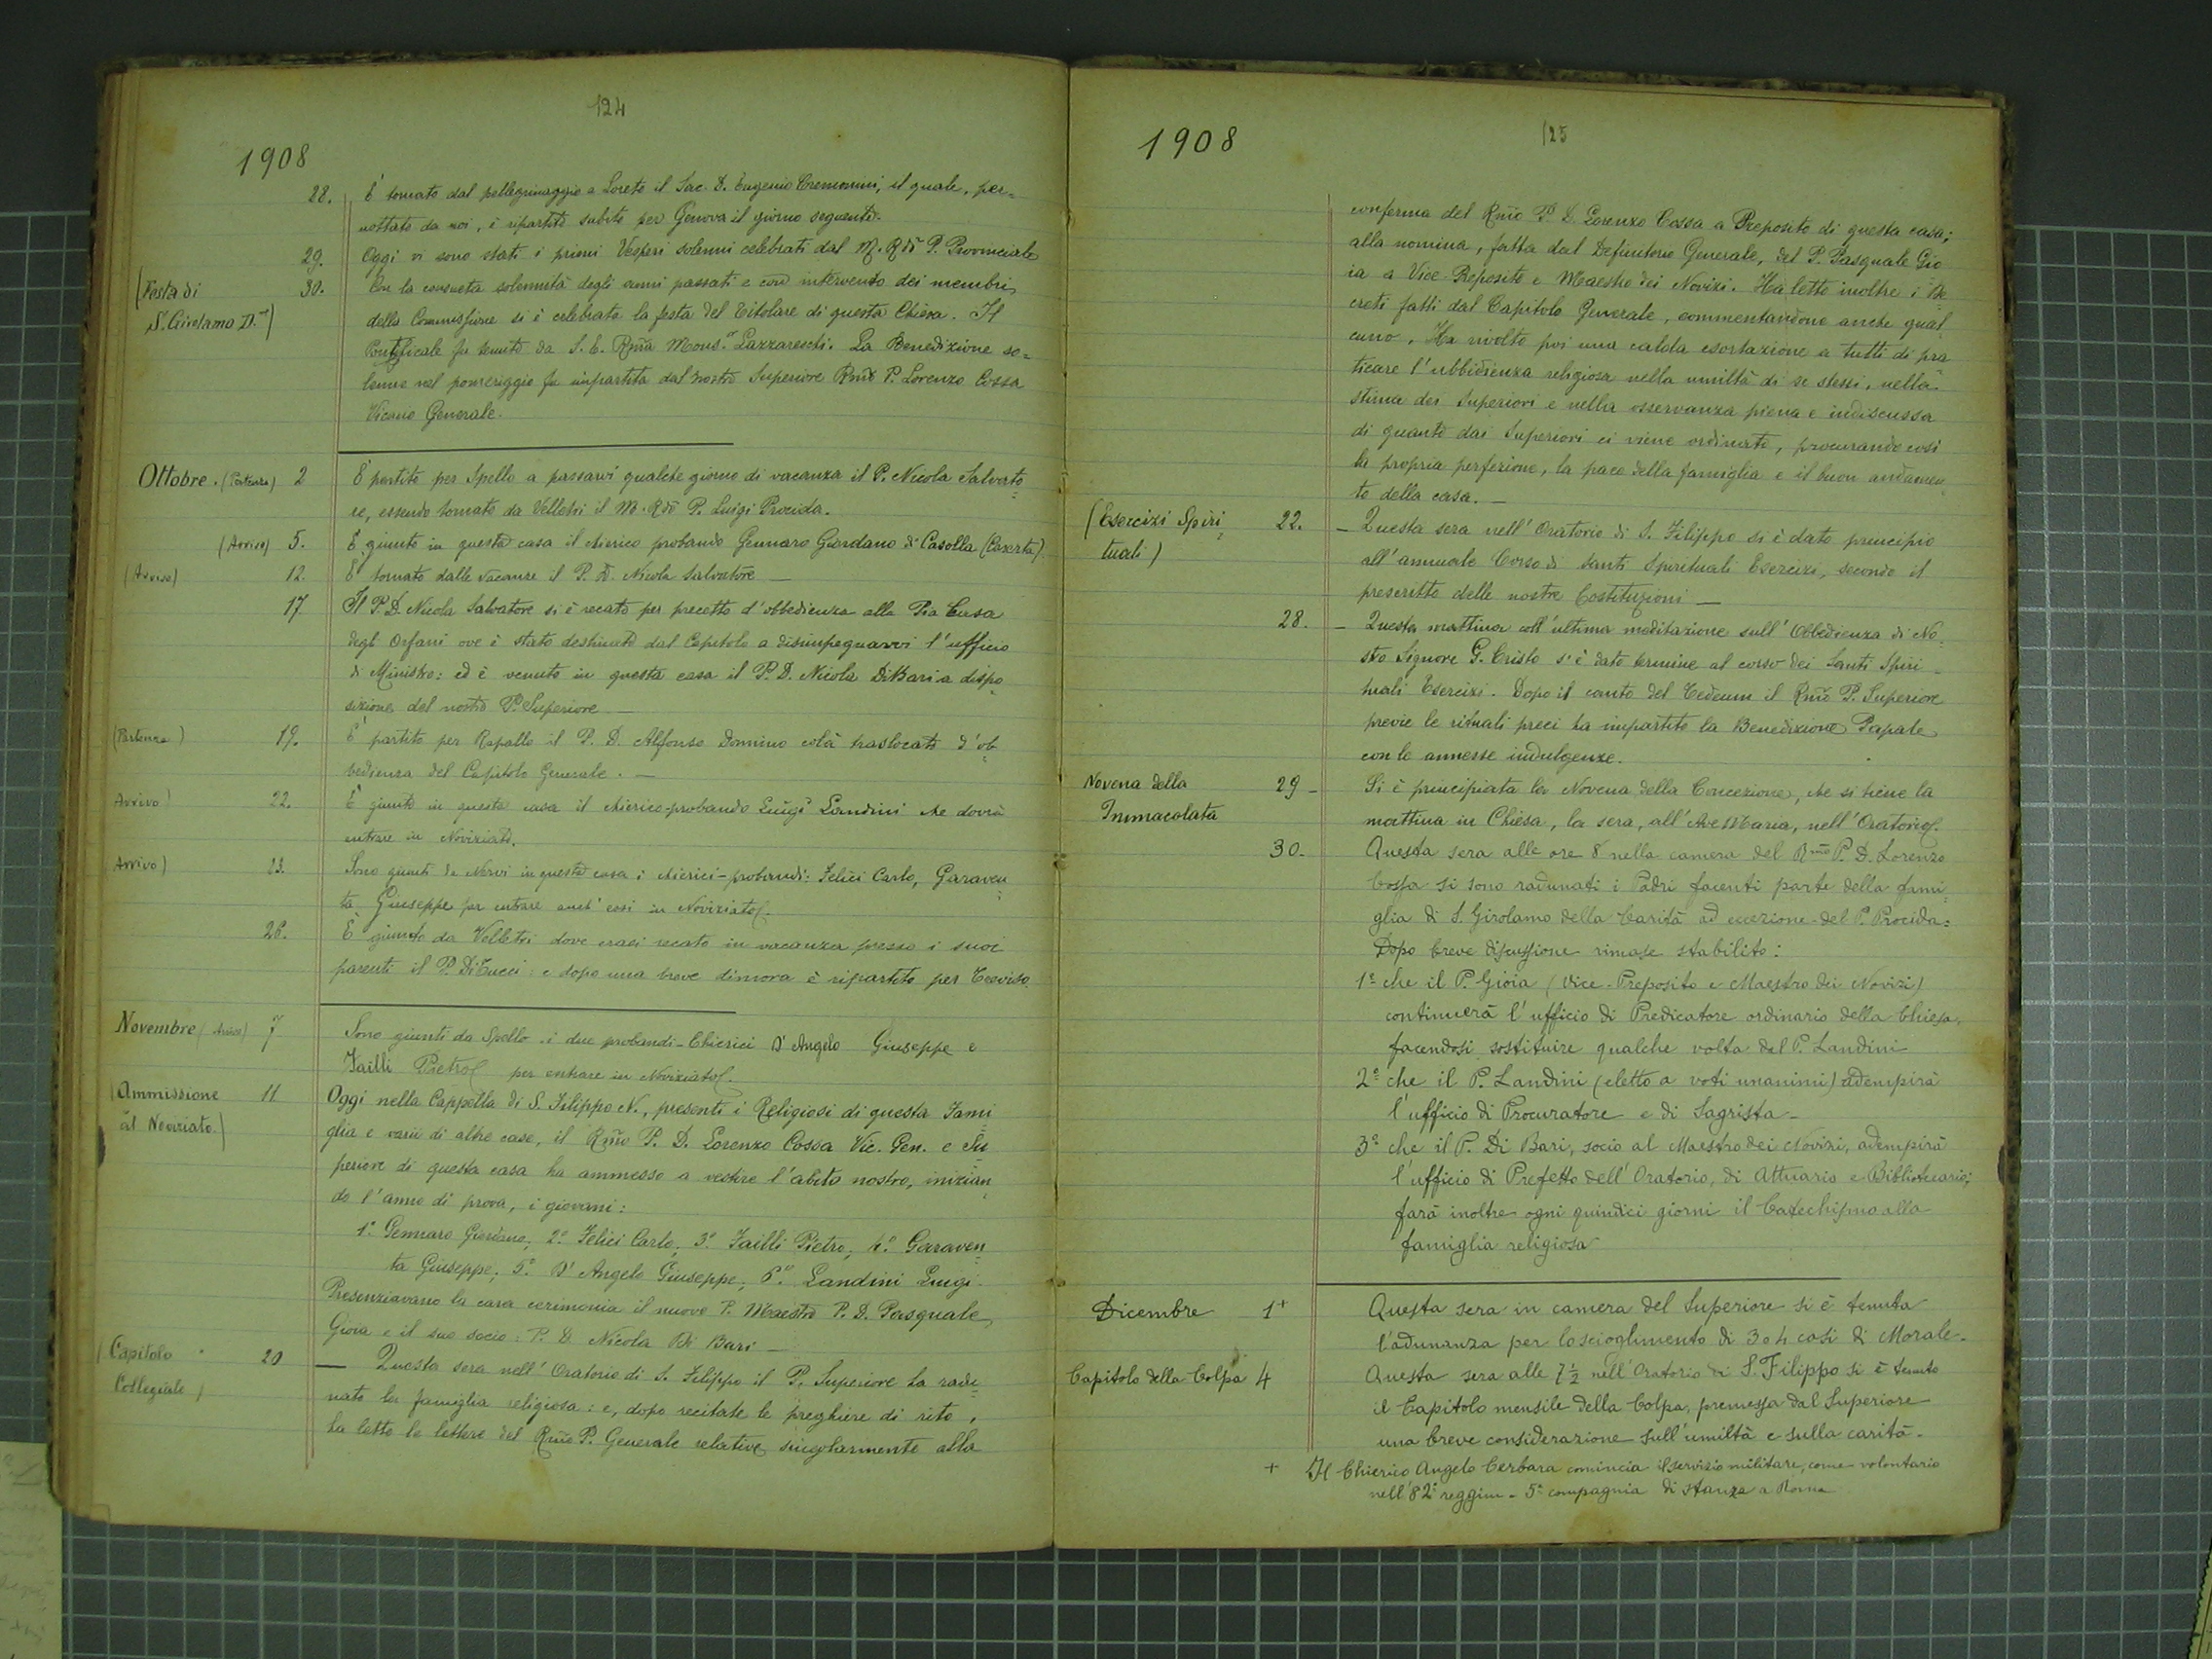 124
1908
28. È tornato dal pellegrinaggio a Loreto il Sac. D. Eugenio Cremonini, il quale, per=
nottato da noi, è ripartito subito per Genova il giorno seguente.
29. Oggi vi sono stati i primi Vesperi solenni celebrati dal M. Rdo P. Provinciale
(Festa di 30. Con la consueta solennità degli anni passati e con intervento dei membri
S. Girolamo D.re) della Commissione si è celebrata la festa del Titolare di questa Chiesa. Il
Pontificale fu tenuto da S. E. Rma Mons.r Lazzareschi. La Benedizione so=
lenne nel pomeriggio fu impartita dal nostro Superiore Rmo P. Lorenzo Cossa
Vicario Generale.
Ottobre. (Partenza) 2 È partito per Spello a passarvi qualche giorno di vacanza il P. Nicola Salvato=
re, essendo tornato da Velletri il M. Rdo P. Luigi Procida.
(Arrivo) 5. È giunto in questa casa il chierico probando Gennaro Giordano di Casolla (Caserta)
(Arrivo) 12. È tornato dalle vacanze il P. D. Nicola Salvatore —
17. Il P. D. Nicola Salvatore si è recato per precetto d'obbedienza alla Pia Casa
degli Orfani ove è stato destinato dal Capitolo a disimpegnarvi l'ufficio
di Ministro: ed è venuto in questa casa il P. D. Nicola DiBari a dispo=
sizione del nostro P. Superiore —
(Partenza) 19. È partito per Rapallo il P. D. Alfonso Domino colà traslocato d'ob=
bedienza del Capitolo Generale. —
Arrivo) 22. È giunto in questa casa il chierico-probando Luigi Landini che dovrà
entrare in Noviziato.
Arrivo) 23. Sono giunti da Nervi in questa casa i chierici-probandi: Felici Carlo, Garaven=
ta Giuseppe per entrare anch'essi in Noviziato.
26. È giunto da Velletri dove erasi recato in vacanza presso i suoi
parenti il P. DiTucci: e dopo una breve dimora è ripartito per Treviso.
Novembre (Arrivo) 7 Sono giunti da Spello i due probandi-Chierici D'Angelo Giuseppe e
Jailli Pietro per entrare in Noviziato.
(Ammissione 11 Oggi nella Cappella di S. Filippo N., presenti i Religiosi di questa Fami=
al Noviziato.) glia e varii di altre case, il Rmo P. D. Lorenzo Cossa Vic. Gen. e Su=
periore di questa casa ha ammesso a vestire l'abito nostro, inizian=
do l'anno di prova, i giovani:
1.° Gennaro Giordano; 2.° Felici Carlo; 3.° Jailli Pietro; 4.° Garaven=
ta Giuseppe; 5.° D'Angelo Giuseppe; 6.° Landini Luigi.
Presenziavano la cara cerimonia il nuovo P. Maestro P. D. Pasquale
Gioia e il suo socio: P. D. Nicola Di Bari —
(Capitolo 20 — Questa sera nell'Oratorio di S. Filippo il P. Superiore ha radu=
Collegiale) nato la famiglia religiosa: e, dopo recitate le preghiere di rito,
ha letto le lettere del Rmo P. Generale relative singolarmente alla
125
1908
conferma del Rmo P. D. Lorenzo Cossa a Preposito di questa casa;
alla nomina, fatta dal Definitorio Generale, del P. Pasquale Gio
ia a Vice-Preposito e Maestro dei Novizi. Ha letto inoltre i De
creti fatti dal Capitolo Generale, commentandone anche qual
cuno. Ha rivolto poi una calda esortazione a tutti di pra
ticare l'ubbidienza religiosa nella umiltà di se stessi, nella
stima dei Superiori e nella osservanza piena e indiscussa
di quanto dai Superiori ci viene ordinato, procurando così
la propria perfezione, la pace della famiglia e il buon andamen=
to della casa. —
(Esercizi Spiri= 22. — Questa sera nell'Oratorio di S. Filippo si è dato principio
tuali) all'annuale Corso di Santi Spirituali Esercizi, secondo il
prescritto delle nostre Costituzioni —
28. — Questa mattina coll'ultima meditazione sull'Obbedienza di No=
stro Signore G. Cristo s'è dato termine al corso dei Santi Spiri=
tuali Esercizi. Dopo il canto del Tedeum il Rmo P. Superiore
previe le rituali preci ha impartito la Benedizione Papale
con le annesse indulgenze.
Novena della 29 — Si è principiata la Novena della Concezione, che si tiene la
Immacolata mattina in Chiesa, la sera, all'Ave Maria, nell'Oratorio.
30. Questa sera alle ore 8 nella camera del Rmo P. D. Lorenzo
Cossa si sono radunati i Padri facenti parte della fami=
glia di S. Girolamo della Carità ad eccezione del P. Procida=
Dopo breve discussione rimase stabilito:
1° che il P. Gioia (Vice-Preposito e Maestro dei Novizi)
continuerà l'ufficio di Predicatore ordinario della Chiesa,
facendosi sostituire qualche volta dal P. Landini
2° che il P. Landini (eletto a voti unanimi) adempirà
l'ufficio di Procuratore e di Sagrista —
3° che il P. Di Bari, socio al Maestro dei Novizi, adempirà
l'ufficio di Prefetto dell'Oratorio, di Attuario e Bibliotecario;
farà inoltre ogni quindici giorni il Catechismo alla
famiglia religiosa
Dicembre 1+ Questa sera in camera del Superiore si è tenuta
l'adunanza per lo scioglimento di 3 o 4 casi di Morale.
Capitolo della Colpa 4 Questa sera alle 7 ½ nell'Oratorio di S. Filippo si è tenuto
il Capitolo mensile della Colpa, premessa dal Superiore
una breve considerazione sull'umiltà e sulla carità.
+ Il Chierico Angelo Cerbara comincia il servizio militare, come volontario
nell'82° reggim. - 5a compagnia di stanza a Roma